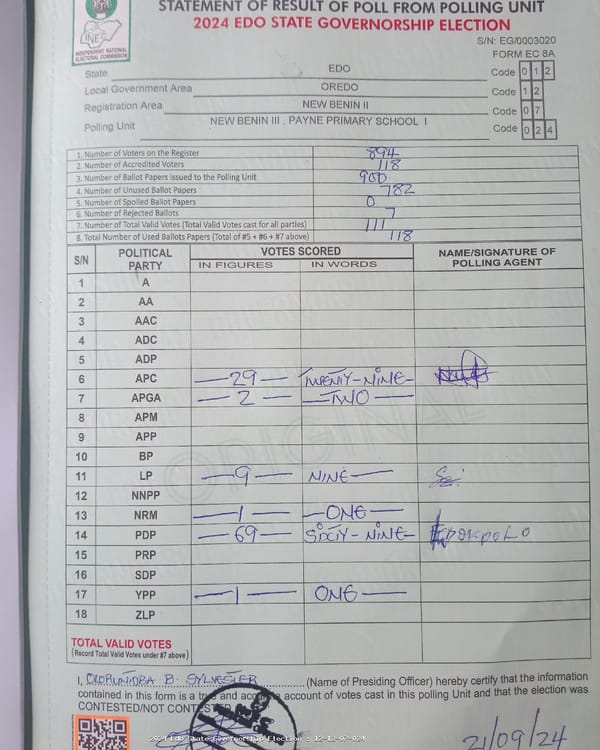 STATEMENT OF RESULT OF POLL FROM POLLING UNIT
2024 EDO STATE GOVERNORSHIP ELECTION
INEC
INDEPENDENT NATIONAL
ELECTORAL COMMISSION
S/N: EG/0003020
FORM EC 8A
State EDO Code 0 1 2
Local Government Area OREDO Code 1 2
Registration Area NEW BENIN II Code 0 7
Polling Unit NEW BENIN III , PAYNE PRIMARY SCHOOL I Code 0 2 4
1. Number of Voters on the Register 894
2. Number of Accredited Voters 118
3. Number of Ballot Papers Issued to the Polling Unit 900
4. Number of Unused Ballot Papers 782
5. Number of Spoiled Ballot Papers 0
6. Number of Rejected Ballots 7
7. Number of Total Valid Votes (Total Valid Votes cast for all parties) 111
8. Total Number of Used Ballots Papers (Total of #5 + #6 + #7 above) 118
S/N POLITICAL PARTY VOTES SCORED NAME/SIGNATURE OF POLLING AGENT
IN FIGURES IN WORDS
1 A
2 AA
3 AAC
4 ADC
5 ADP
6 APC —29— TWENTY-NINE-
7 APGA —2— —TWO—
8 APM
9 APP
10 BP
11 LP —9— NINE—
12 NNPP
13 NRM —1— —ONE—
14 PDP —69— SIXTY-NINE-
15 PRP
16 SDP
17 YPP —1— ONE—
18 ZLP
ORIGINAL
TOTAL VALID VOTES
(Record Total Valid Votes under #7 above)
I, B. SYLVESTER (Name of Presiding Officer) hereby certify that the information
contained in this form is a true and accurate account of votes cast in this polling Unit and that the election was
CONTESTED/NOT CONTESTED
21/09/24